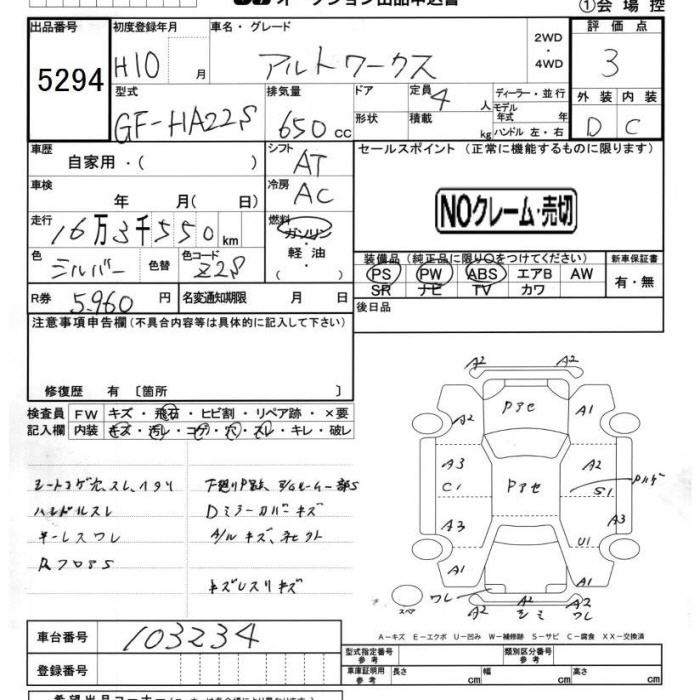 オークション出品申込書
①会場控
出品番号 初度登録年月 車名・グレード 2WD ・ 4WD 評価点
5294 H10 月 アルトワークス 3
型式 排気量 ドア 定員 4 人 ディーラー・並行 外装 内装
GF-HA22S 650 cc 形状 積載 kg モデル年式 年 ハンドル 左・右 D C
車歴 自家用・( ) シフト AT セールスポイント (正常に機能するものに限ります)
車検 年 月( 日) 冷房 AC
NOクレーム・売切
走行 16万3千550 km 燃料 ガソリン・軽油・( )
色 シルバー 色替 色コード Z2S 装備品 (純正品に限り○をつけてください) 新車保証書
PS PW ABS エアB AW 有・無
SR ナビ TV カワ
R券 5,960 円 名変通知期限 月 日 後日品
注意事項申告欄(不具合内容等は具体的に記入して下さい)
修復歴 有 〔箇所 〕
検査員 FW キズ・飛石・ヒビ割・リペア跡・×要
記入欄 内装 キズ・汚レ・コゲ・穴・スレ・キレ・破レ
シートコゲ穴、スレ、ヘタリ
ハンドルスレ
キーレスワレ
下廻りPサビ
Dミラーカバーキズ
A/Wキズ、
A2 A2
A2 Pアセ A1
A3 C1 Pアセ A2 S1
A3 A3
U1
A1 A1
ワレ A2 A2 A2 ワレ
スペア
A-キズ E-エクボ U-凹み W-補修跡 S-サビ C-腐食 XX-交換済
車台番号 103234 型式指定番号 参考 類別区分番号 参考
登録番号 車庫証明用 参考 長さ cm 幅 cm 高さ cm